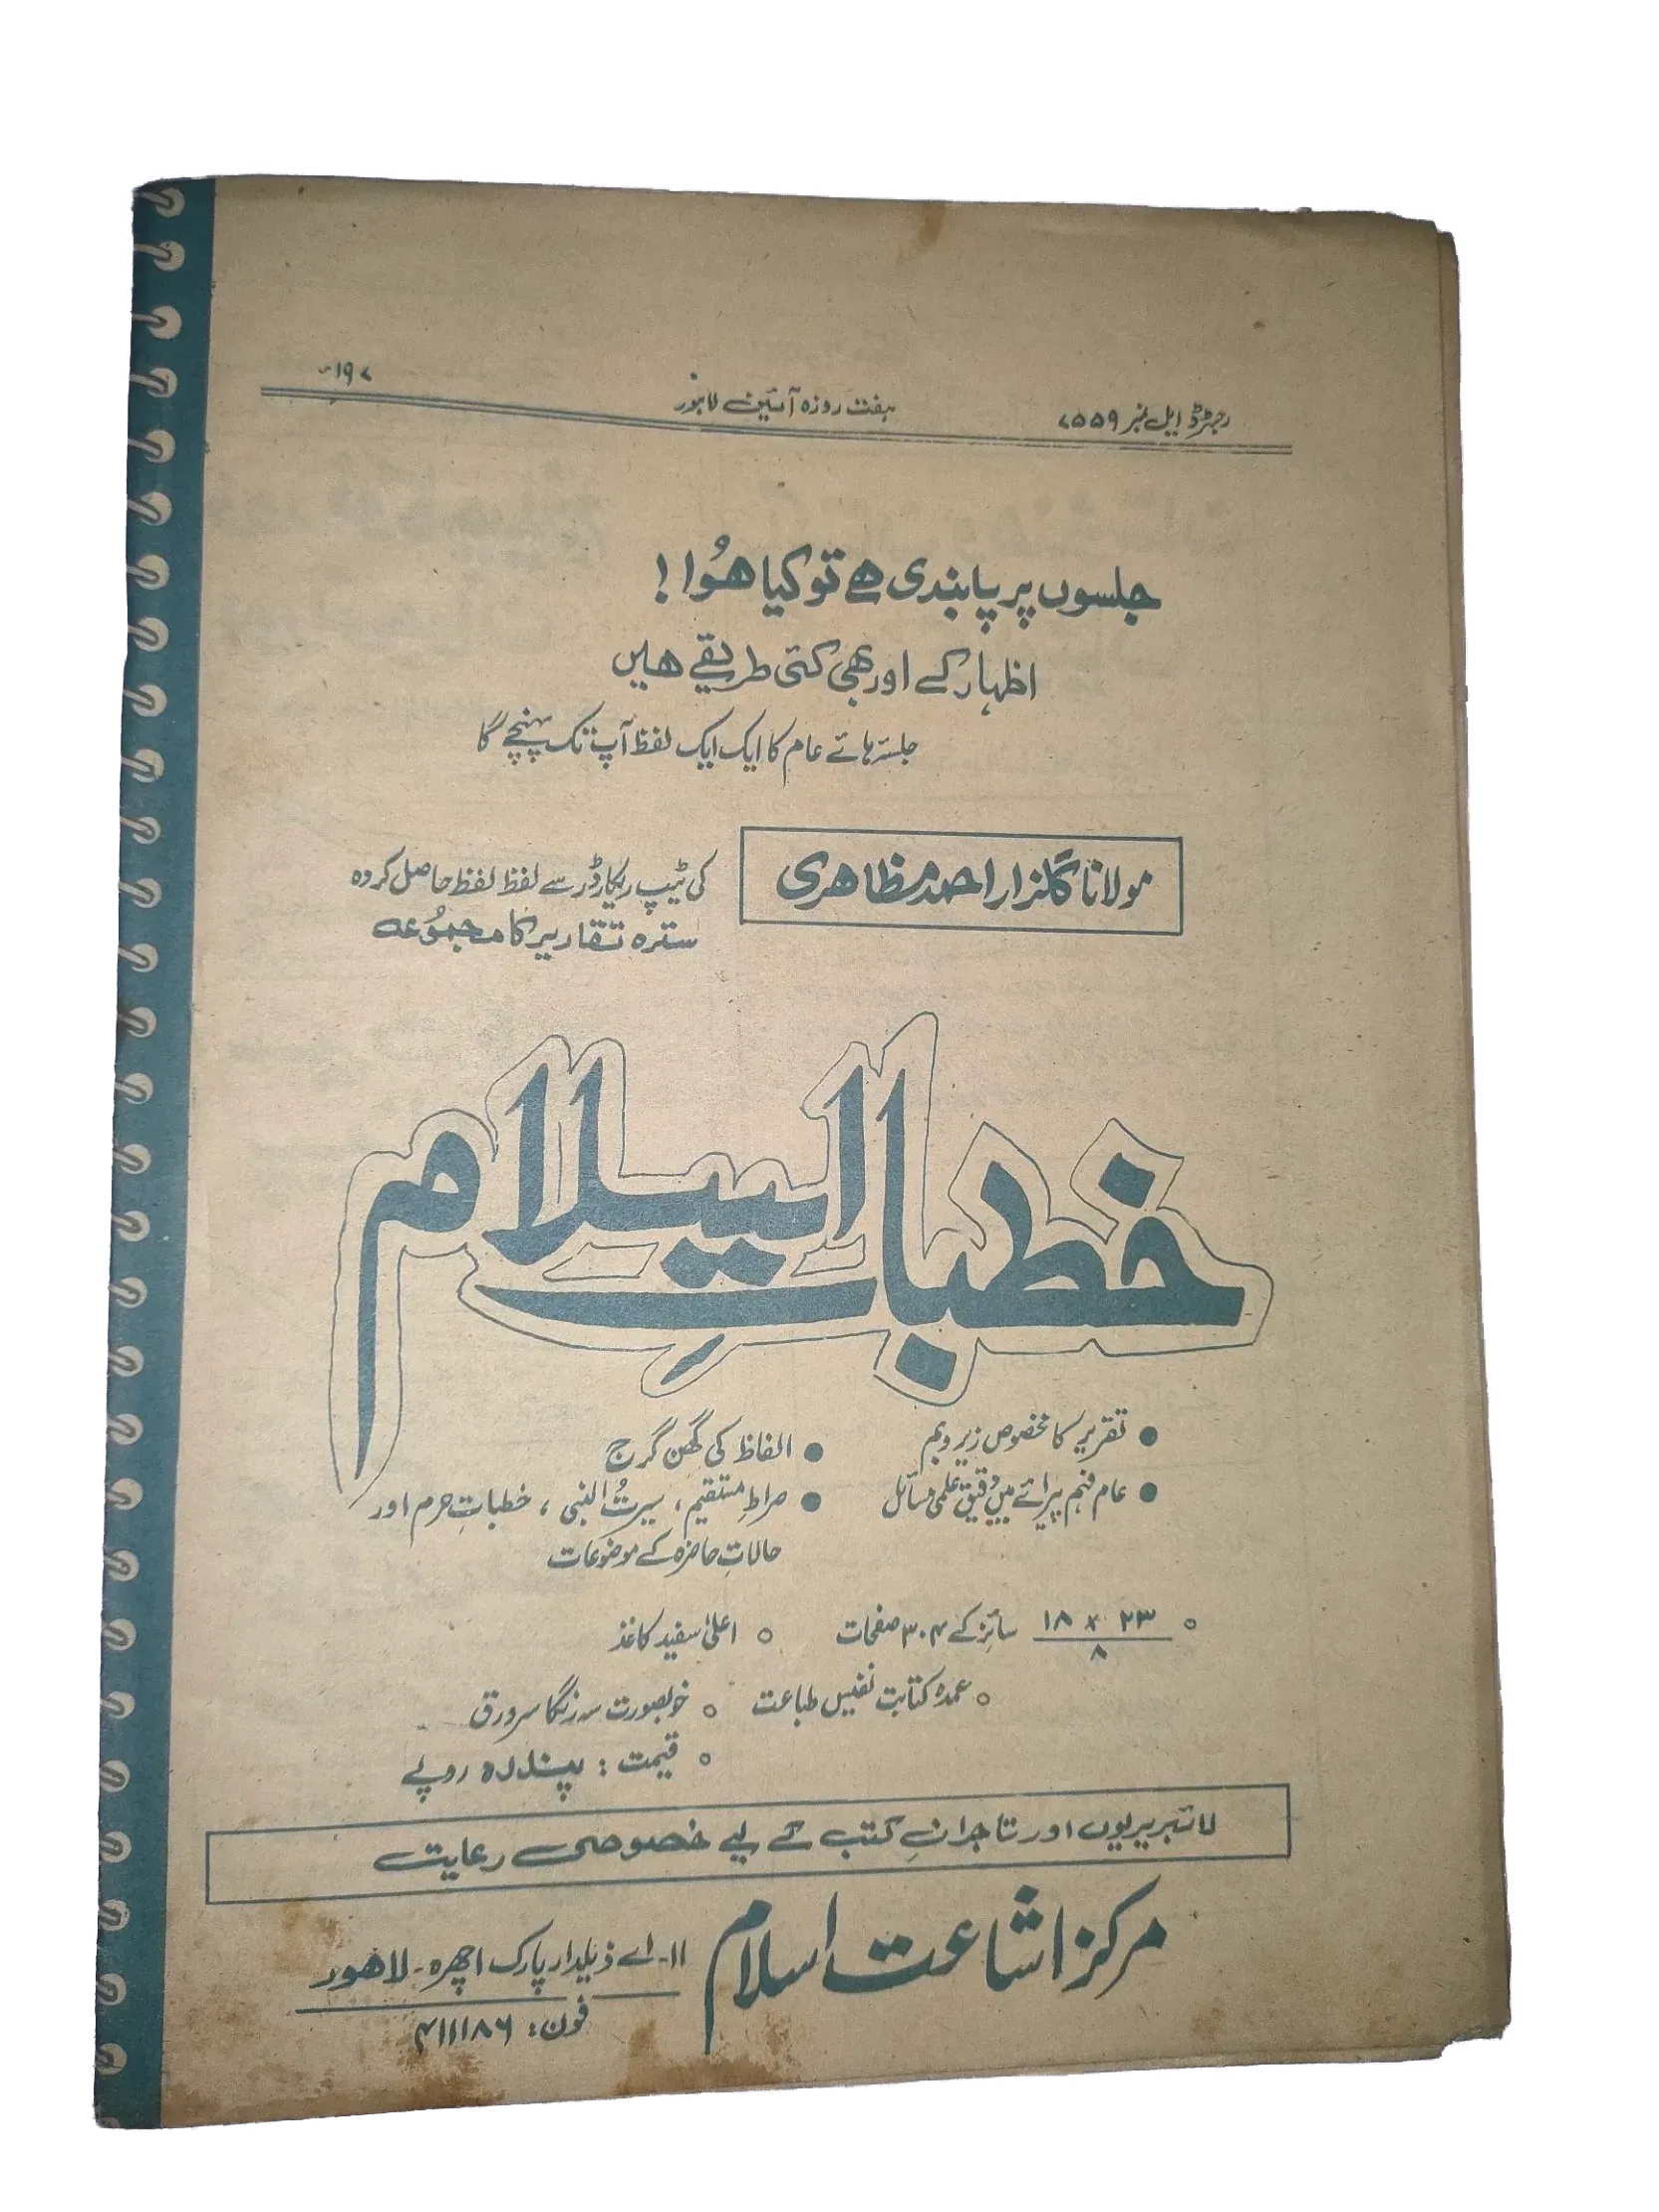 رجسٹرڈ ایل نمبر ۷۵۵۹
ہفت روزہ آئین لاہور
جلسوں پر پابندی ہے تو کیا ہُوا !
اظہار کے اور بھی کئی طریقے ہیں
جلسہ ہائے عام کا ایک ایک لفظ آپ تک پہنچے گا
مولانا گلزار احمد مظاہری
کی ٹیپ ریکارڈر سے لفظ لفظ حاصل کردہ
سترہ تقاریر کا مجموُعہ
خطباتِ اسلام
● تقریر کا مخصوص زیر و بم
● الفاظ کی گھن گرج
● عام فہم پیرائے میں دقیق علمی مسائل
● صراطِ مستقیم ، سیرتُ النبی ، خطباتِ حرم اور
حالاتِ حاضرہ کے موضوعات
○ ۲۳ × ۱۸ / ۸ سائز کے ۳۰۴ صفحات
○ اعلیٰ سفید کاغذ
○ عمدہ کتابت نفیس طباعت
○ خوبصورت سہ رنگا سرورق
○ قیمت : پندرہ روپے
لائبریریوں اور تاجرانِ کتب کے لیے خصوصی رعایت
مرکز اشاعت اسلام
۱۱- اے ذیلدار پارک اچھرہ - لاہور
فون: ۴۱۱۱۸۶